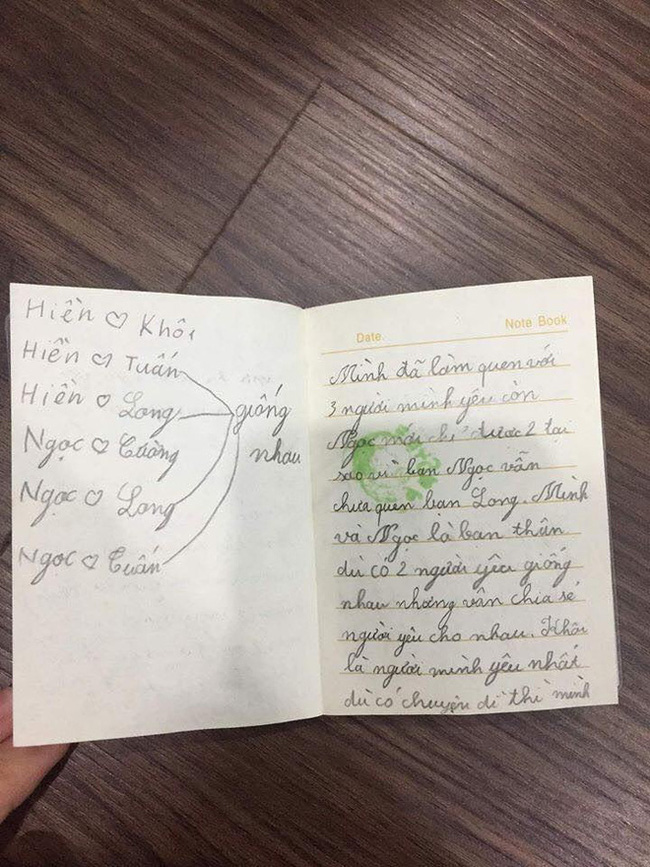 Hiền ♡ Khôi
Hiền ♡ Tuấn
Hiền ♡ Long
giống
Ngọc ♡ Cường
nhau
Ngọc ♡ Long
Ngọc ♡ Tuấn
Date.
Note Book
Mình đã làm quen với
3 người mình yêu còn
Ngọc mới chỉ được 2 tại
sao vì bạn Ngọc vẫn
chưa quen bạn Long. Mình
và Ngọc là bạn thân
dù có 2 người yêu giống
nhau nhưng vẫn chia sẻ
người yêu cho nhau. Khôi
là người mình yêu nhất
dù có chuyện dì thì mình